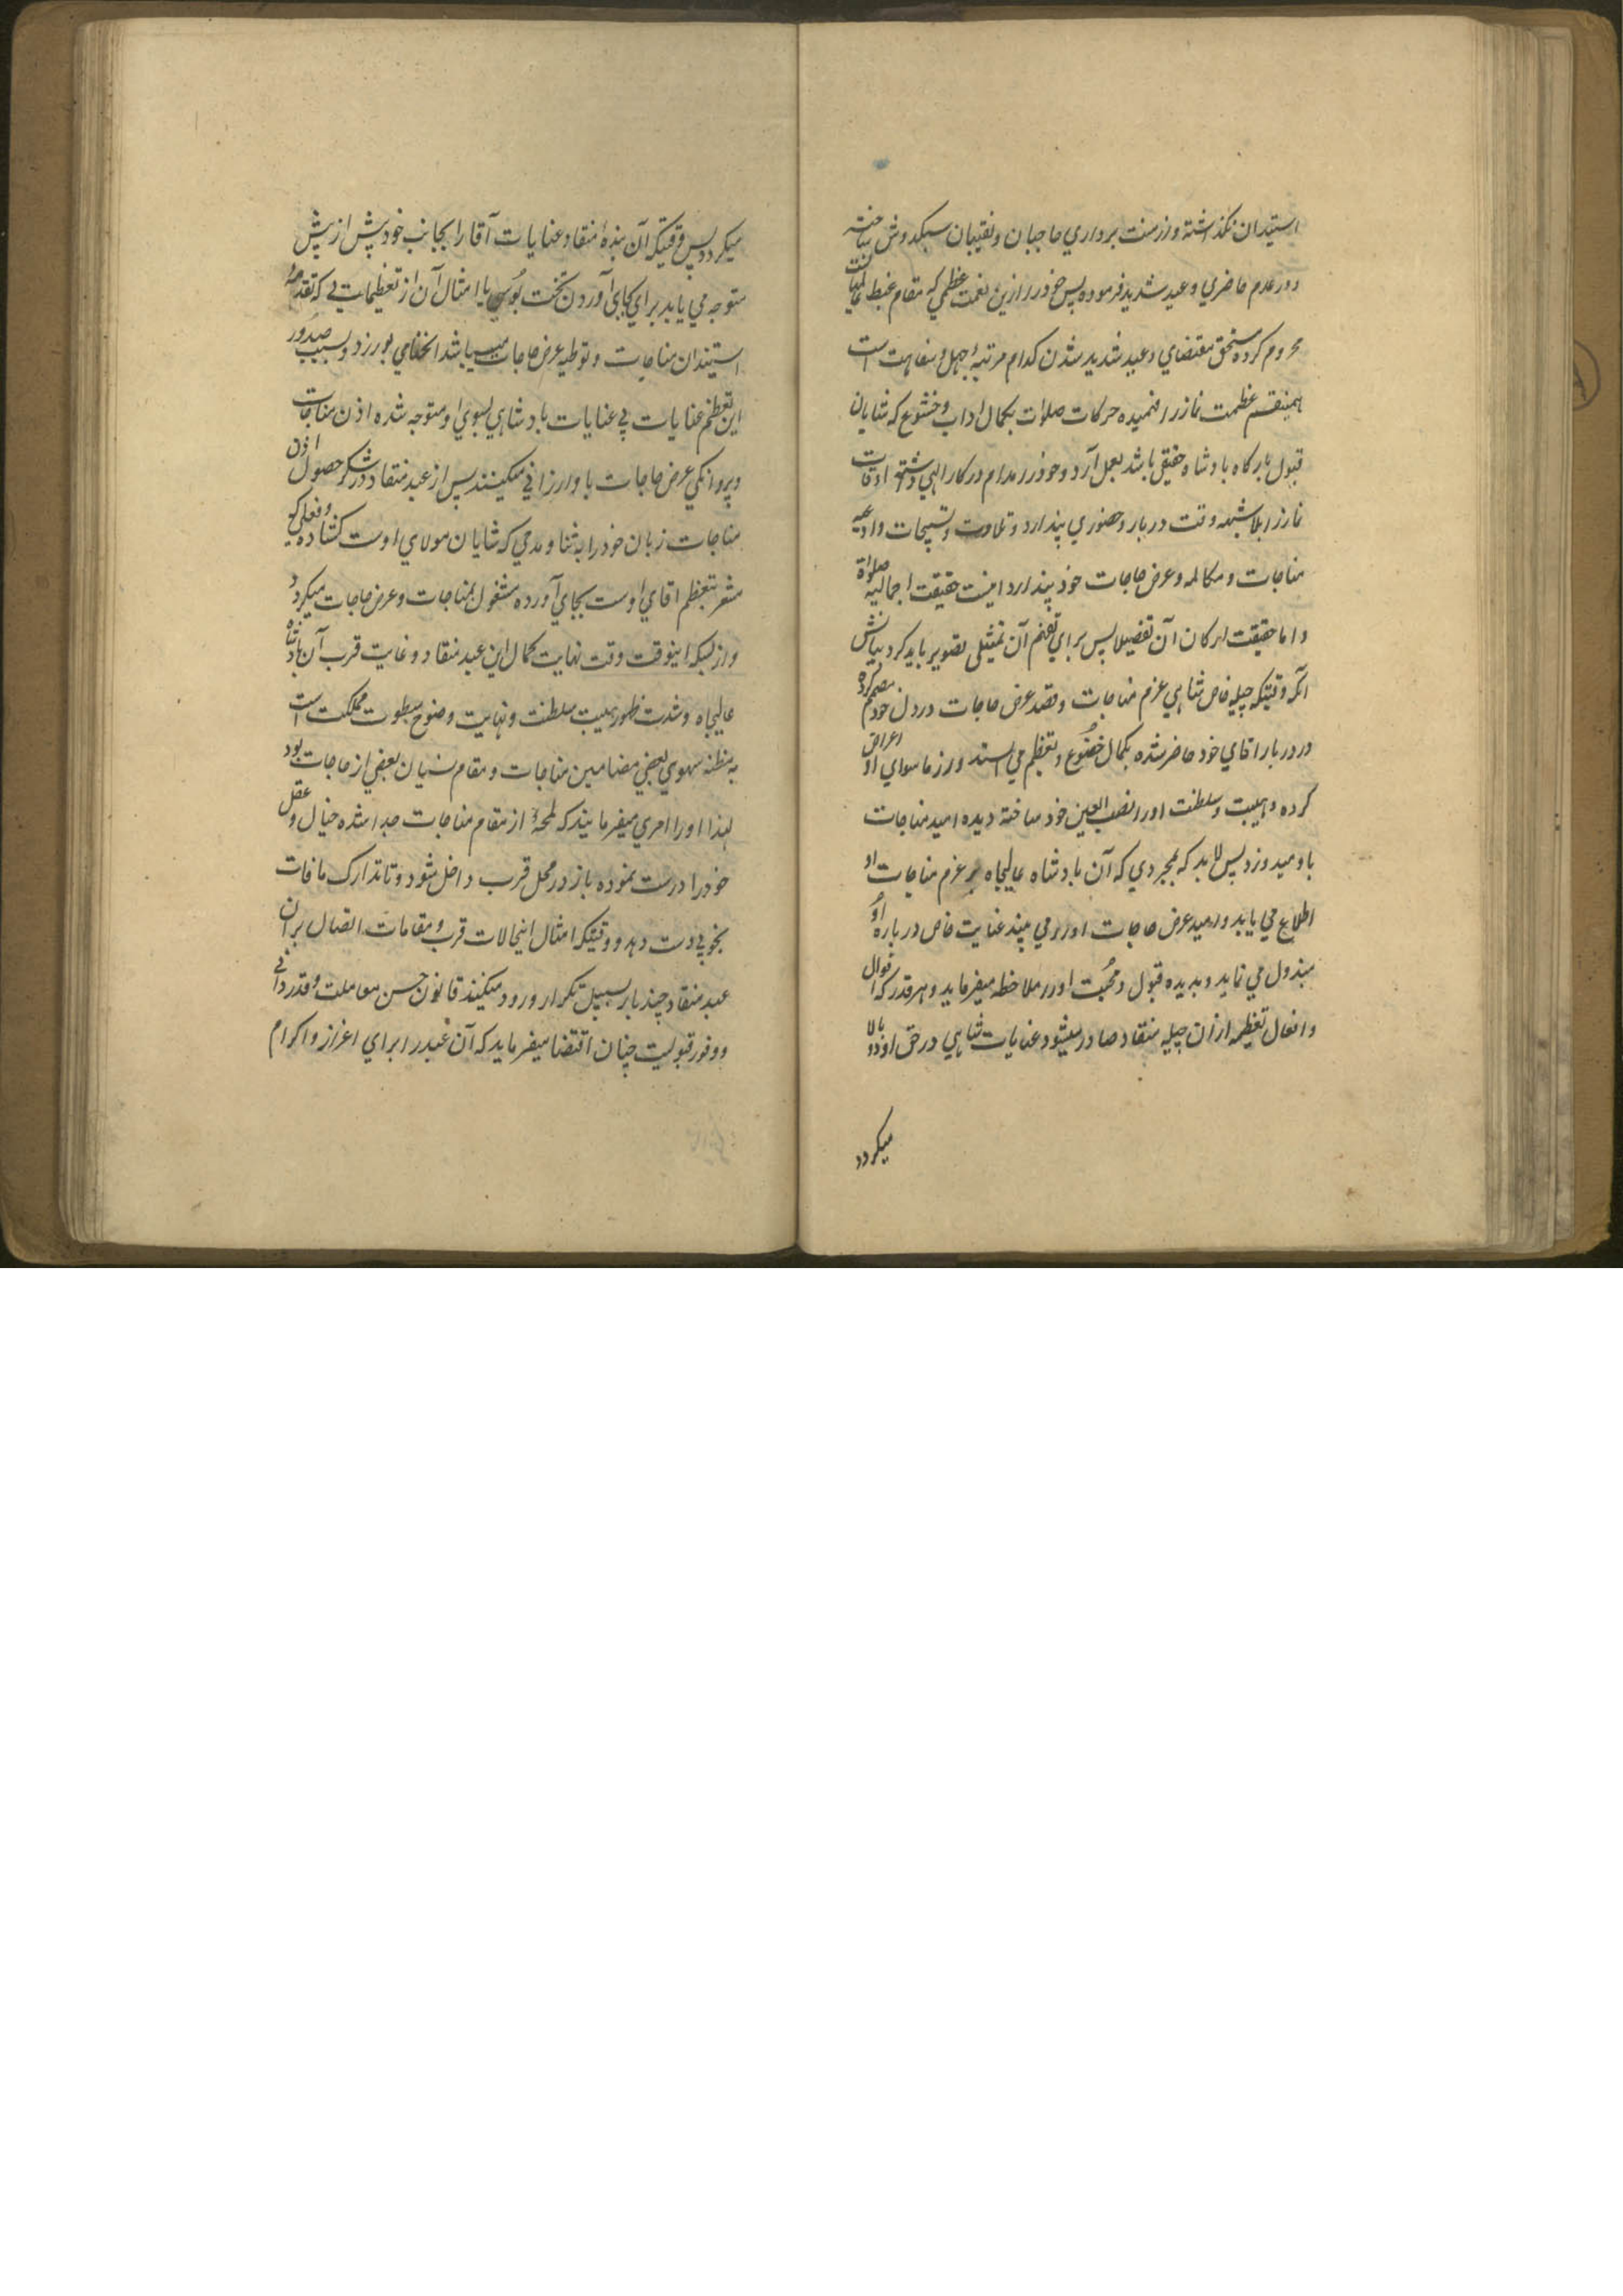 استیدان نگذاشته و از منت برداری حاجبان و نقیبان سبکدوش ساخته
و در عدم حاضری وعید شدید فرموده پس خود را ازین نعمت عظمی که مقام غبطه
محروم کرده مستحق مقتضای وعید شدید شدن کدام مرتبه جهل و سفاهت است
همینقسم عظمت نماز را فهمیده حرکات صلوات بکمال اداب و خشوع که شایان
قبول بارگاه بادشاه حقیقی باشد بعمل آرد و خود را مدام در کار الهی داشته اوقات
نماز را بلا شبهه وقت دربار و حضوری پندارد و تلاوت و تسبیحات و ادعیه
مناجات و مکالمه و عرض حاجات خود پندارد اینست حقیقت اجمالیه صلواة
و اما حقیقت ارکان آن تفصیلا پس برای تفهیم آن تمثیلی تصویر باید کرد بیانش
آنکه وقتیکه چیله خاص شاهی عزم مناجات و قصد عرض حاجات در دل خود مصمم کرده
در دربار اقای خود حاضر شده بکمال خضوع و تعظیم می استد و از ما سوای او اعراض
کرده و هیبت و سلطنت او را نصب العین خود ساخته دیده امید مناجات
باو میدوزد پس لابد که بمجردی که آن بادشاه عالیجاه بر عزم مناجات او
اطلاع می یابد و امید عرض حاجات او را می بیند عنایت خاص در باره او
مبذول می نماید و بدیده قبول و محبت او را ملاحظه میفرماید و هر قدر که اقوال
و افعال تعظیمه ازان چیله منقاد صادر میشود عنایات شاهی در حق او دو بالا
میگردد
میگردد پس وقتیکه آن بنده منقاد عنایات آقا را بجانب خود پیش از پیش
متوجه می یابد برای بجای آوردن تخت بوسی یا امثال آن از تعظیمات که مقدمه
استیذان مناجات و توطیه عرض حاجات میباشد انحنامی بورزد و بسبب صدور
این تعظیم عنایات پی عنایات بادشاهی بسوی او متوجه شده اذن مناجات
و پروانگی عرض حاجات باو ارزانی میکنند پس از عبد منقاد در شکر حصول اذن
مناجات زبان خود را به ثنا و مدحی که شایان مولای اوست کشاده و فعلی که
مشعر بتعظیم اقای اوست بجای آورده مشغول بمناجات و عرض حاجات میگردد
و از بسکه اینوقت وقت نهایت کمال این عبد منقاد و غایت قرب آن بادشاه
عالیجاه و شدت ظهور هیبت سلطنت و نهایت وضوح سطوت مملکت است
به مظنه سهوی بعضی مضامین مناجات و مقام نسیان بعضی از حاجات بود
لهذا او را امری میفرمایند که لمحهٔ از مقام مناجات جدا شده خیال و عقل
خود را درست نموده باز در محل قرب داخل شود و تا تدارک مافات
بخوبی دست دهد و وقتیکه امثال اینحالات قرب و مقامات اتصال بر آن
عبد منقاد چند بار بسبیل تکرار ورود میکنند قانون حسن معاملت و قدردانی
و وفور قبولیت چنان اقتضا میفرماید که آن عبد را برای اعزاز و اکرام